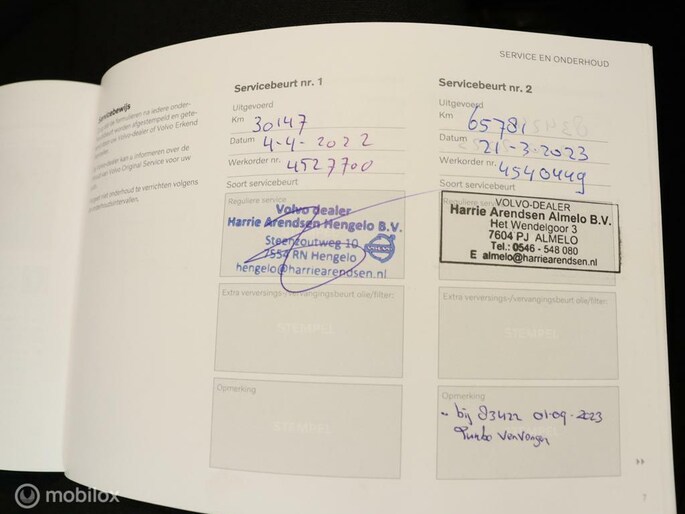 SERVICE EN ONDERHOUD
Servicebewijs
formulieren na iedere onder-
afgestempeld en gete-
Volvo-dealer of Volvo Erkend
dealer kan u informeren over de
Volvo Original Service voor uw
onderhoud te verrichten volgens
Servicebeurt nr. 1
Uitgevoerd
Km 30147
Datum 4-4-2022
Werkorder nr. 4527700
Soort servicebeurt
Reguliere service
Volvo dealer
Harrie Arendsen Hengelo B.V.
Steenzoutweg 10
7554 RN Hengelo
hengelo@harriearendsen.nl
Extra verversings-/vervangingsbeurt olie/filter:
STEMPEL
Opmerking
STEMPEL
Servicebeurt nr. 2
Uitgevoerd
Km 65781
Datum 21-3-2023
Werkorder nr. 4540449
Soort servicebeurt
Reguliere service
VOLVO-DEALER
Harrie Arendsen Almelo B.V.
Het Wendelgoor 3
7604 PJ ALMELO
Tel.: 0546 - 548 080
E almelo@harriearendsen.nl
Extra verversings-/vervangingsbeurt olie/filter:
STEMPEL
Opmerking
bij 83422 01-09-2023
Turbo vervangen
7
mobilox